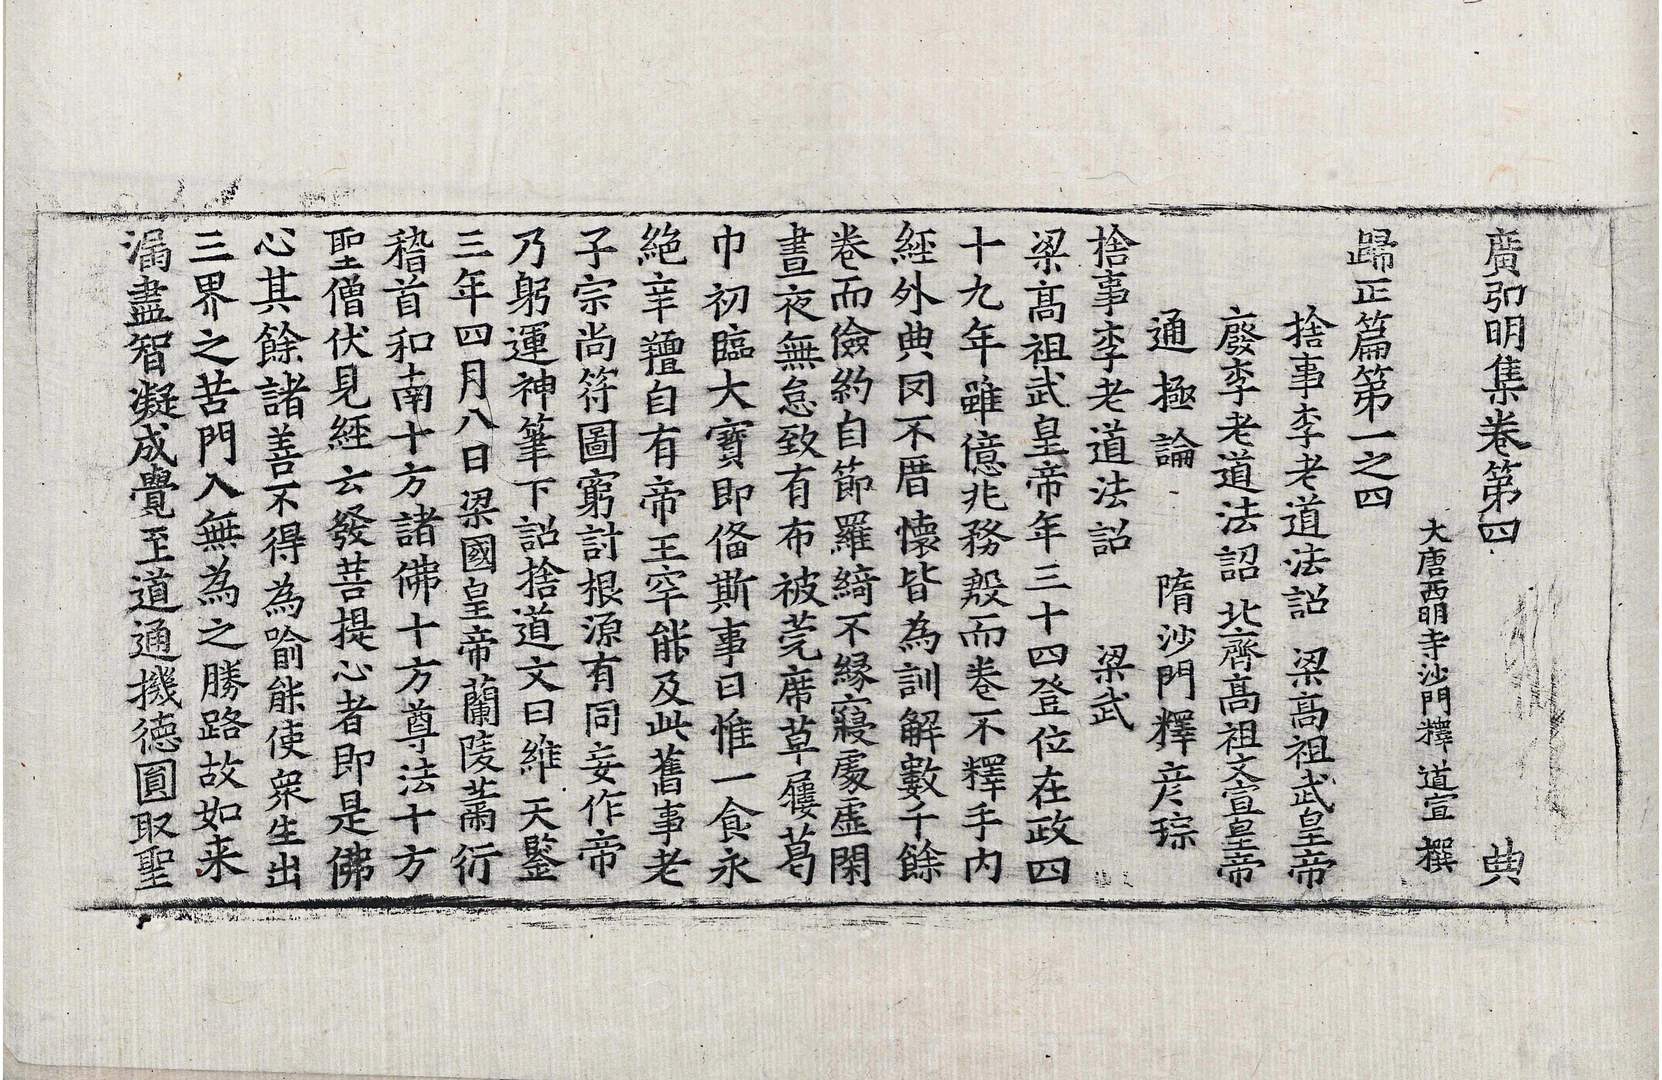 廣弘明集卷第四　典
大唐西明寺沙門釋道宣撰
歸正篇第一之四
捨事李老道法詔　梁高祖武皇帝
廢李老道法詔　北齊高祖文宣皇帝
通極論　隋沙門釋彥琮
捨事李老道法詔　梁武
梁高祖武皇帝年三十四登位在政四
十九年雖億兆務殷而卷不釋手內
經外典罔不厝懷皆為訓解數千餘
卷而儉約自節羅綺不緣寢處虛閑
晝夜無怠致有布被莞席草屨葛
巾初臨大寶即俻斯事日惟一食永
絕辛羶自有帝王罕能及此舊事老
子宗尚符圖窮討根源有同妄作帝
乃躬運神筆下詔捨道文曰維天鑒
三年四月八日梁國皇帝蘭陵蕭衍
稽首和南十方諸佛十方尊法十方
聖僧伏見經云發菩提心者即是佛
心其餘諸善不得為喻能使衆生出
三界之苦門入無為之勝路故如来
漏盡智凝成覺至道通機德圓取聖